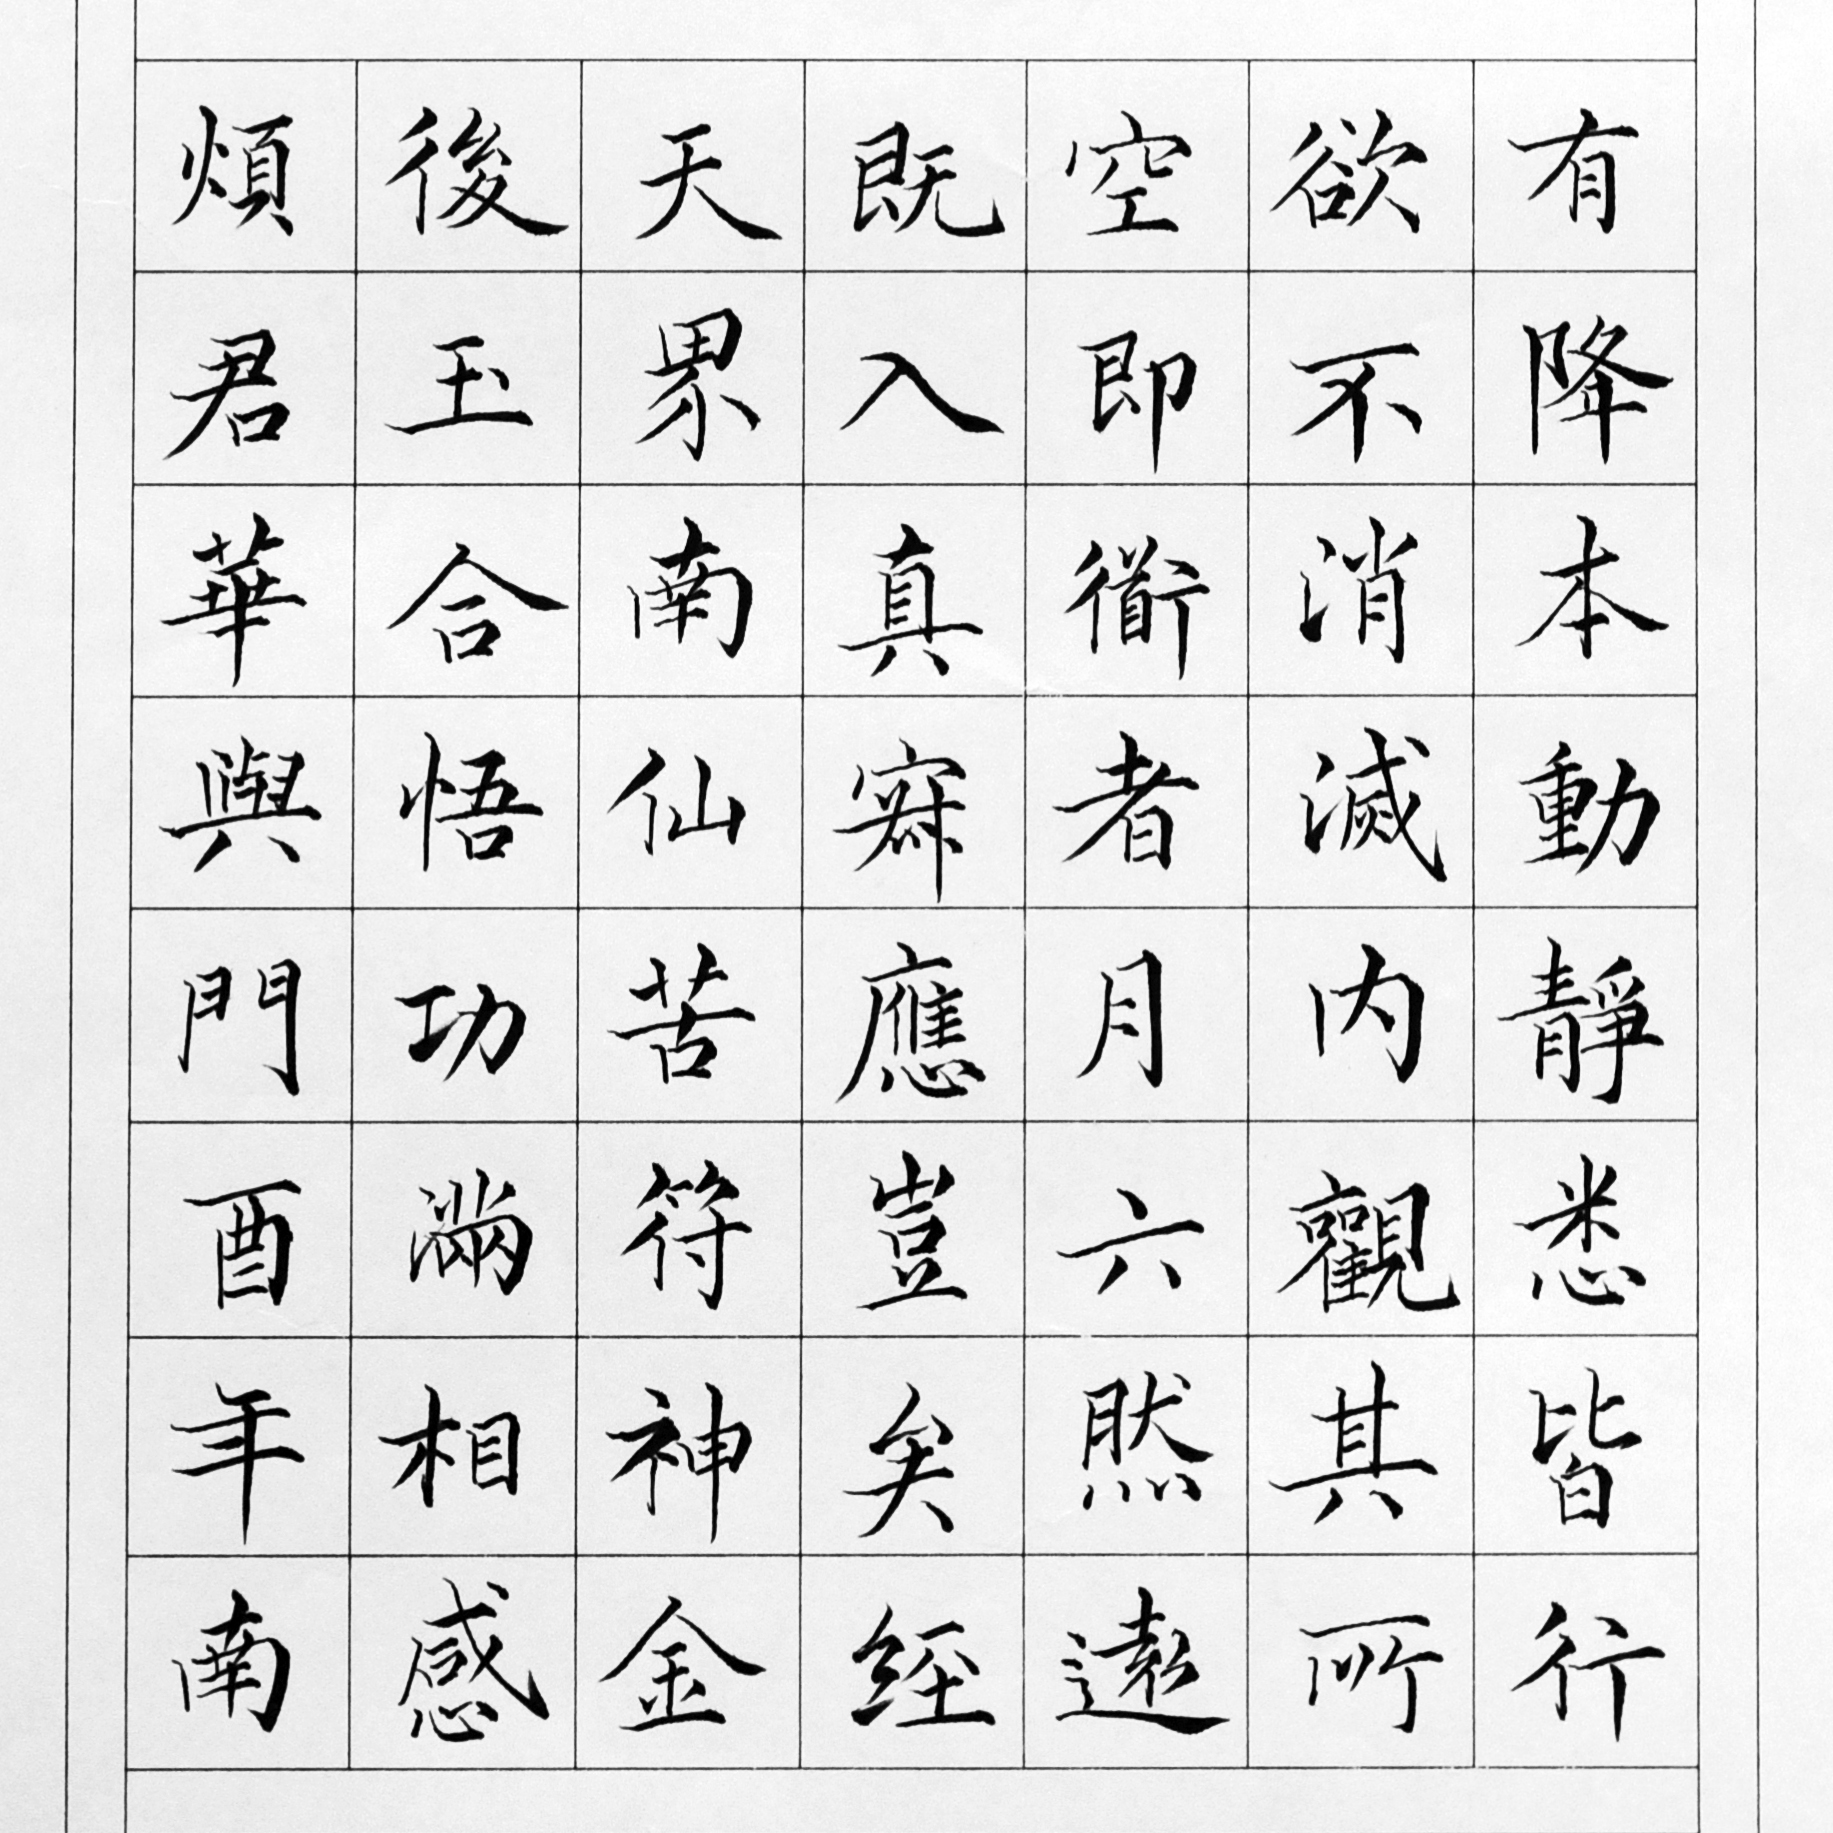 有降本動靜悉皆行
欲不消滅内觀其所
空即衜者月六然遠
既入真寂應豈矣經
天累南仙苦符神金
後玉合悟功滿相感
煩君華與門酉年南